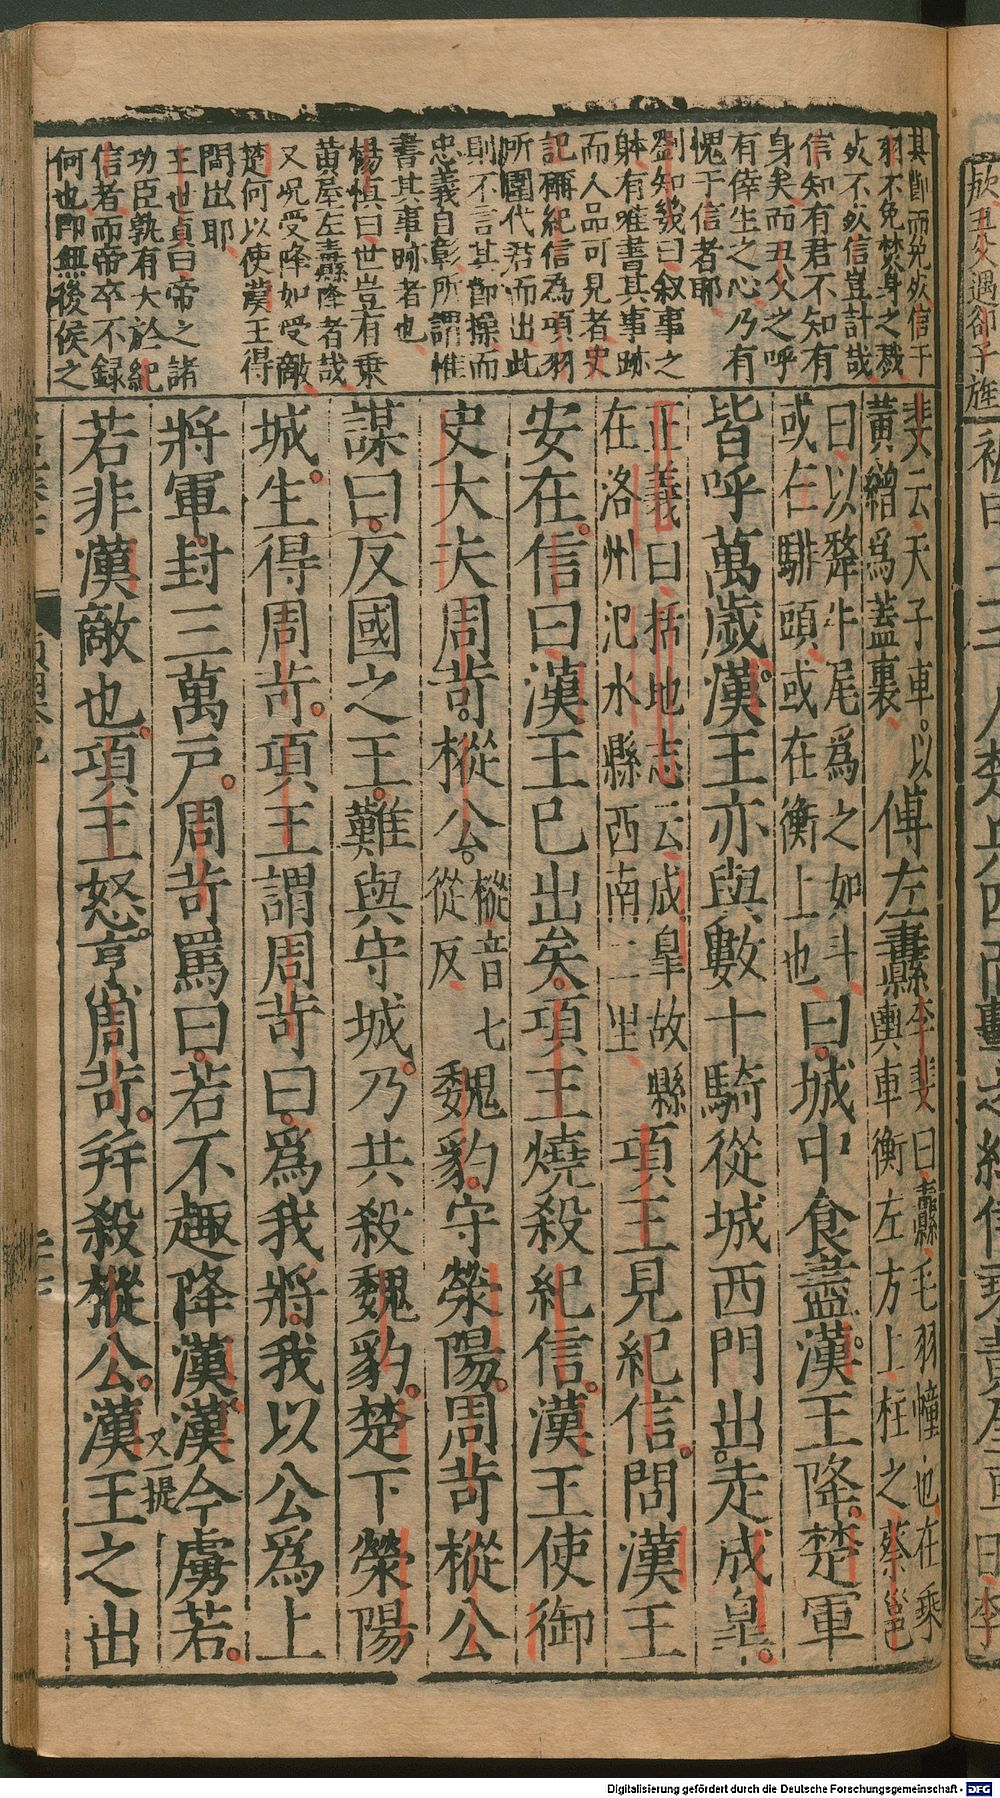 其創而免死信于
羽不免焚身之戮
死不死信豈計哉
信知有君不知有
身矣而丑父之呼
有倖生之心乃有
愧于信者耶
劉知幾曰叙事之
體有唯書其事跡
而人品可見者史
記稱紀信為項羽
所圍代君而出此
則不言其節操而
忠義自彰所謂惟
書其事跡者也
楊慎曰世豈有乗
黃屋左纛降者哉
又况受降如受敵
楚何以使漢王得
間出耶
王世貞曰帝之諸
功臣孰有大於紀
信者而帝卒不録
何也即無後侯之
斐云天子車。以黃繒爲蓋裏、傅左纛李斐曰、纛、毛羽幢也、在乘輿車衡左方上、柱之、蔡邕
曰、以犛牛尾爲之、如斗、或在騑頭、或在衡上也、曰。城中食盡。漢王降。楚軍
皆呼萬歲。漢王亦與數十騎從城西門出。走成皐。
正義曰、括地志云、成皐故縣在洛州氾水縣西南二里、項王見紀信。問漢王
安在。信曰、漢王已出矣。項王燒殺紀信。漢王使御
史大夫周苛。樅公。樅音七從反、魏豹。守滎陽。周苛樅公
謀曰、反國之王。難與守城。乃共殺魏豹。楚下滎陽
城。生得周苛。項王謂周苛曰。爲我將。我以公爲上
將軍。封三萬戸。周苛罵曰。若不趣降漢。漢今虜若。
又提
若非漢敵也。項王怒。亨周苛。并殺樅公。漢王之出
Digitalisierung gefördert durch die Deutsche Forschungsgemeinschaft - DFG